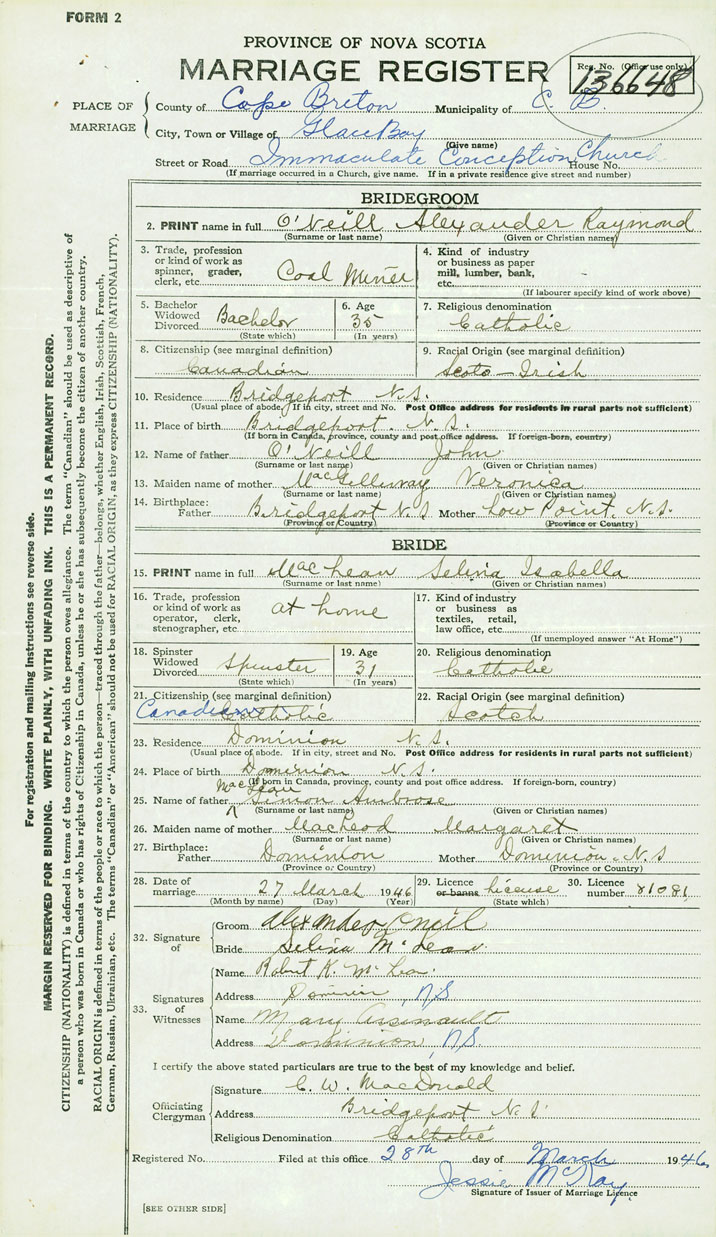 FORM 2
PROVINCE OF NOVA SCOTIA
MARRIAGE REGISTER
Reg. No. (Office use only)
136648
PLACE OF MARRIAGE
County of Cape Breton Municipality of C. B.
City, Town or Village of Glace Bay
(Give name)
Street or Road Immaculate Conception Church House No.
(If marriage occurred in a Church, give name. If in a private residence give street and number)
BRIDEGROOM
2. PRINT name in full O'Neill Alexander Raymond
(Surname or last name) (Given or Christian names)
3. Trade, profession or kind of work as spinner, grader, clerk, etc. Coal Miner
4. Kind of industry or business as paper mill, lumber, bank, etc.
(If labourer specify kind of work above)
5. Bachelor Widowed Divorced Bachelor
(State which)
6. Age 35
(In years)
7. Religious denomination
Catholic
8. Citizenship (see marginal definition)
Canadian
9. Racial Origin (see marginal definition)
Scoto-Irish
10. Residence Bridgeport N.S.
(Usual place of abode. If in city, street and No. Post Office address for residents in rural parts not sufficient)
11. Place of birth Bridgeport. N.S.
(If born in Canada, province, county and post office address. If foreign-born, country)
12. Name of father O'Neill John
(Surname or last name) (Given or Christian names)
13. Maiden name of mother MacGillivray Veronica
(Surname or last name) (Given or Christian names)
14. Birthplace: Father Bridgeport N.S Mother Low Point N.S.
(Province or Country) (Province or Country)
BRIDE
15. PRINT name in full MacLean Selina Isabella
(Surname or last name) (Given or Christian names)
16. Trade, profession or kind of work as operator, clerk, stenographer, etc. at home
17. Kind of industry or business as textiles, retail, law office, etc.
(If unemployed answer "At Home")
18. Spinster Widowed Divorced Spinster
(State which)
19. Age 31
(In years)
20. Religious denomination
Catholic
21. Citizenship (see marginal definition)
Canadian Catholic
22. Racial Origin (see marginal definition)
Scotch
23. Residence Dominion N.S.
(Usual place of abode. If in city, street and No. Post Office address for residents in rural parts not sufficient)
24. Place of birth Dominion N.S.
(If born in Canada, province, county and post office address. If foreign-born, country)
MacLean
25. Name of father Simon Ambrose
(Surname or last name) (Given or Christian names)
26. Maiden name of mother MacLeod Margaret
(Surname or last name) (Given or Christian names)
27. Birthplace: Father Dominion Mother Dominion. N.S
(Province or Country) (Province or Country)
28. Date of marriage 27 March 1946
(Month by name) (Day) (Year)
29. Licence or banns license
(State which)
30. Licence number 81081
32. Signature of
Groom Alexander Oneil
Bride Selina McLean
33. Signatures of Witnesses
Name Robert K. McLean
Address Dominion N.S
Name Mary Arsenault
Address Dominion N.S.
I certify the above stated particulars are true to the best of my knowledge and belief.
Officiating Clergyman
Signature C. W. MacDonald
Address Bridgeport N.S
Religious Denomination Catholic
Registered No. Filed at this office 28th day of March 1946
Jessie McKay
Signature of Issuer of Marriage Licence
[SEE OTHER SIDE]
For registration and mailing instructions see reverse side.
MARGIN RESERVED FOR BINDING. WRITE PLAINLY, WITH UNFADING INK. THIS IS A PERMANENT RECORD.
CITIZENSHIP (NATIONALITY) is defined in terms of the country to which the person owes allegiance. The term "Canadian" should be used as descriptive of
a person who was born in Canada or who has rights of Citizenship in Canada, unless he or she has subsequently become the citizen of another country.
RACIAL ORIGIN is defined in terms of the people or race to which the person—traced through the father—belongs, whether English, Irish, Scottish, French,
German, Russian, Ukrainian, etc. The terms "Canadian" or "American" should not be used for RACIAL ORIGIN, as they express CITIZENSHIP (NATIONALITY).